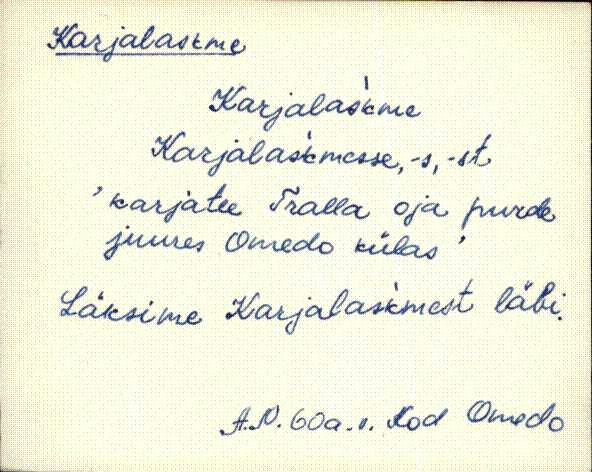 Karjalaskme
Karjalas̀kme
Karjalas̀kmesse, -s, -st
'karjatee Tralla oja purde
juures Omedo külas'
Läksime Karjalas̀kmest läbi.
A.N. 60a.v. Kod Omedo